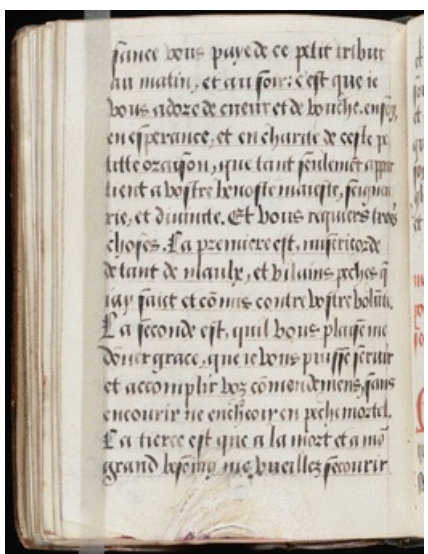 sance vous paye de ce petit tribut
au matin, et au soir: c'est que ie
vous adore de cueur et de bouche. en foy,
en esperance, et en charite de ceste pe
titte oraison, que tant seulemēt appar
tient a vostre benoiste maieste, seigneu
rie, et divinite. Et vous requiers trois
choses. La premiere est, misericorde
de tant de maulx, et vilains peches q̄
iay faict et cōmis contre vostre volūte.
La seconde est, quil vous plaise me
dōner grace, que ie vous puisse servir
et accomplir voz cōmendemens, sans
encourir ne encheoir en peche mortel.
La tierce est que a la mort et a mō
grand besoing me vueillez secourir